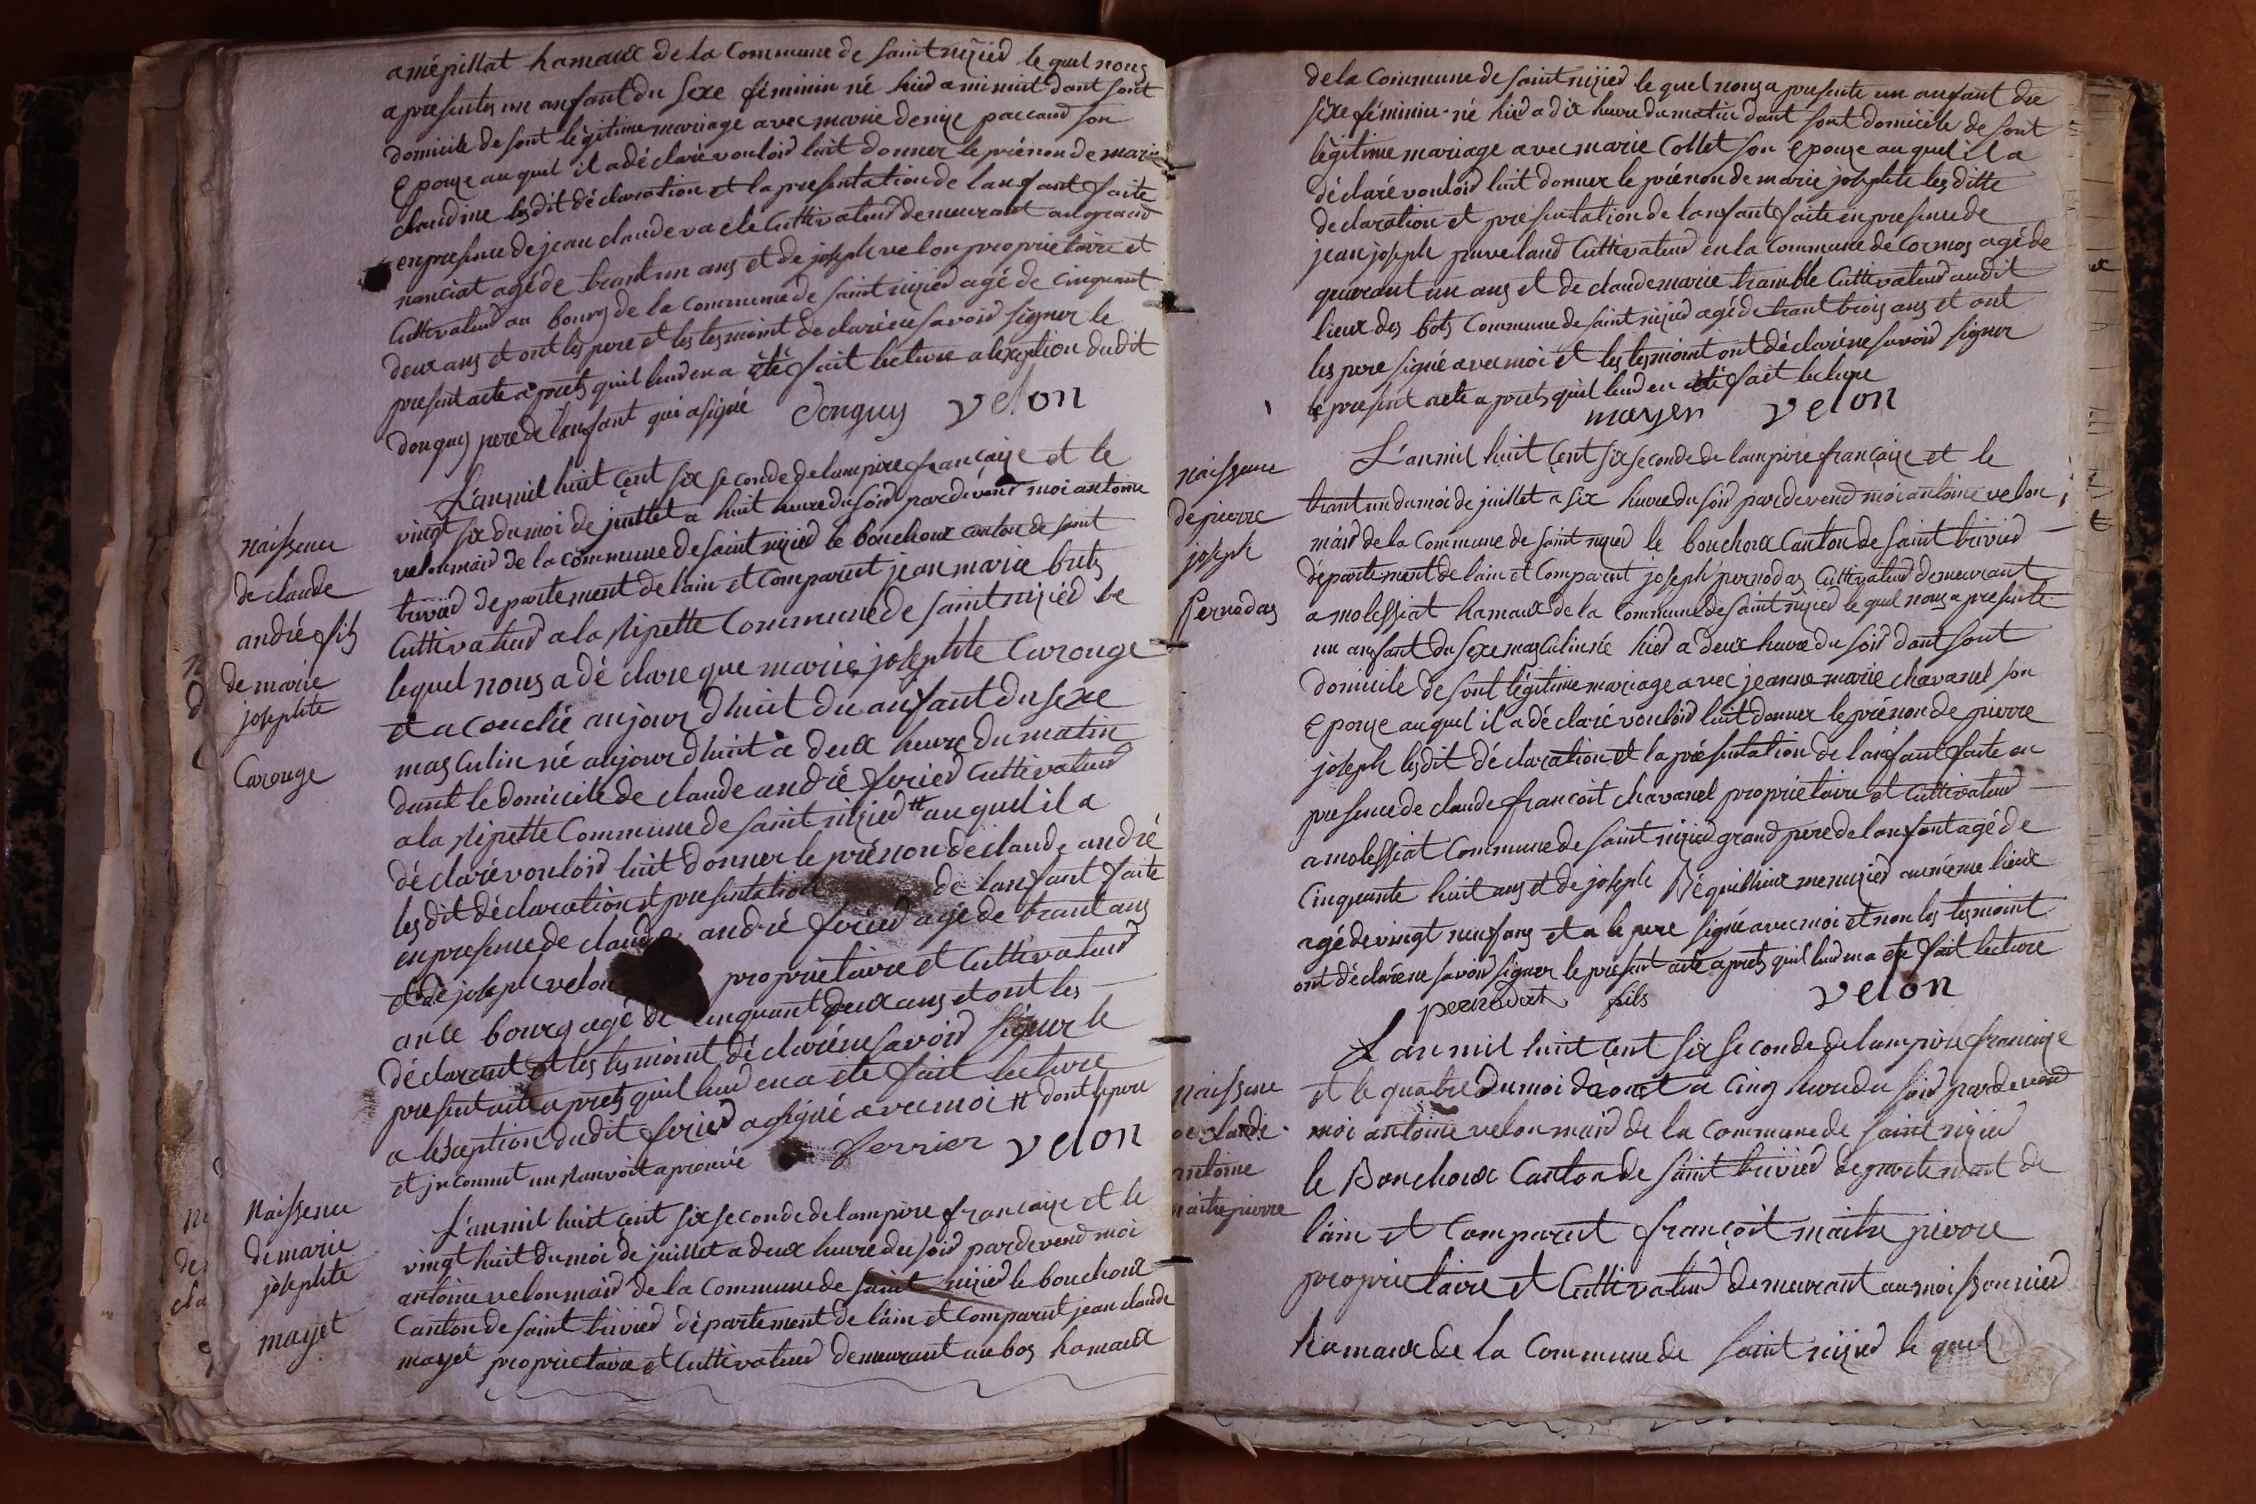 a mépillat hamaux de la Commune de saint nizied le quel nous
a presentes un anfant du sexe féminin né hied a minuit dant sont
domicile de sont légitime mariage avec marie denize paccaud son
Epouze auquel il a déclaré vouloid luit donner le prénon de marie
claudine lesdit déclaration et la presentation de lanfant faite
en presence de jean claude vacle Cultivateud demeurant au grand
nonciat agé de trant un ans et de joseph velon proprietaire et
Cultivateud au bourg de la Commune de saint nizied agé de cinquant
deux ans et ont les pere et les tesmoint declaré ne savoid signer le
present acte aprets quil leud en a été fait lecture a lexeption dudit
donguy pere de lanfant qui a signé Donguy velon
naissence
de claude
andré fils
de marie
josephte
Carouge
L'an mil huit cent six seconde de lampire françaize et le
vingt six du moi de juillet a huit heure du soid pardevend moi antoine
velon maid de la commune de saint nizied le bouchoux canton de saint
trivied departement de lain et Comparut jean marie buts
Cultivateud a la Nipette Commune de saint nizied le
lequel nous a déclare que marie josephte Carouge
et acouchée aujourdhuit du anfant du sexe
masculin né aujourdhuit a deux heure du matin
dant le domicile de claude andré feried Cultivateud
a la Nipette Commune de saint nizied # auquel il a
déclaré vouloid luit donner le prénon de claude andré
lesdit déclaration et presentation de lanfant faite
en presence de claude andré feried agé de trant ans
et de joseph velon proprietaire et Cultivateud
an le bourg agé de cinquant deux ans et ont les
déclarant et les tesmoint déclaré ne savoid signer le
present acte aprets quil leud en a été fait lecture
a lexeption dudit feried a signé avec moi # dont le pere
et inconnut un ranvoit aprouvé ferrier velon
Naissence
de marie
josephte
mayet
L'an mil huit cent six seconde de lampire françaize et le
vingt huit du moi de juillet a deux heure du soid pardevend moi
antoine velon maid de la Commune de saint nizied le bouchoux
Canton de saint trivied département de lain et Comparut jean claude
mayet proprietaire et Cultivateud demeurant au bos hamaux
de la Commune de saint nizied le quel nous a presente un anfant du
sexe féminin né hied a dix heure du matin dant sont domicile de sont
légitime mariage avec marie Collet son Epouze auquel il a
déclaré vouloid luit donner le prénon de marie josephte lesditte
declaration et presentation de lanfant faite en presence de
jean joseph puvelaud Cultivateud en la Commune de Cormos agé de
quarant un ans et de claude marie tramble Cultivateud audit
lieux des bots Commune de saint nizied agé de trant trois ans et ont
les pere signé avec moi et les tesmoint ont déclaré ne savoid signer
le present acte aprets quil leud en été fait lecture
mayen velon
naissence
de pierre
joseph
Pernodas
L'an mil huit cent six seconde de lampire françaize et le
trant un du moi de juillet a six heure du soid pardevend moi antoine velon
maid de la Commune de saint nizied le bouchoux Canton de saint trivied
département de lain et Comparut joseph pernodas Cultivateud demeurant
a molessiat hamaux de la Commune de saint nizied le quel nous a presente
un anfant du sexe masculin né hied a deux heure du soid dant sont
domicile de sont légitime mariage avec jeanne marie chavanel son
Epouze auquel il a déclaré vouloid luit donner le prénon de pierre
joseph lesdit déclaration et la présentation de lanfant faite en
presence de claude francoit chavanel proprietaire et Cultivateud
a molessiat Commune de saint nizied grand pere de lanfant agé de
Cinquante huit ans et de joseph Béquilhiux menuzied au même lieux
agé de vingt neuf ans et a le pere signé avec moi et non les tesmoint
ont déclaré ne savoid signer le present acte aprets quil leud en a été fait lecture
pernodat fils velon
naissence
de claude
antoine
maitrepierre
L'an mil huit cent six seconde de lampire françaize
et le quatre du moi daout a cinq heure du soid pardevend
moi antoine velon maid de la Commune de saint nizied
le Bouchoux Canton de saint trivied departemant de
lain et Comparut françoit maitre pierre
proprietaire et Cultivateud demeurant au moissonnied
hamaux de la Commune de saint nizied le quel